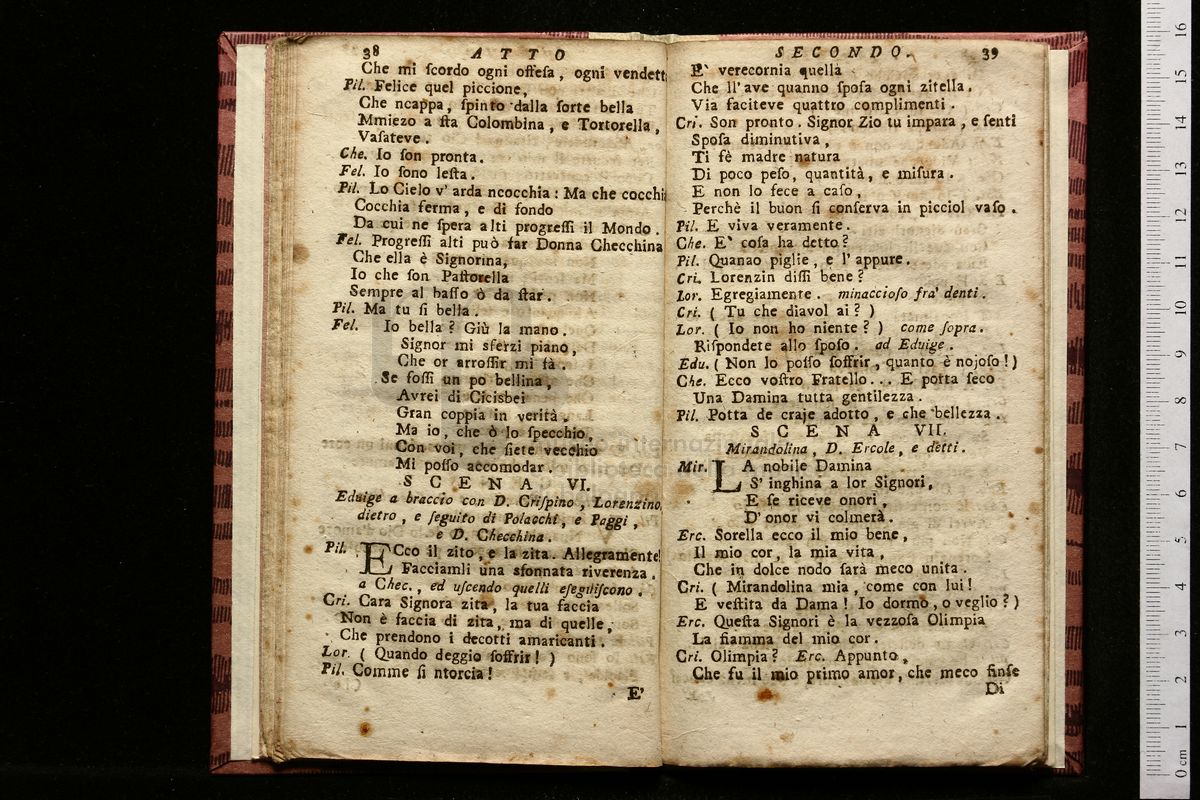 38 ATTO
Che mi ſcordo ogni offeſa, ogni vendett
Pil. Felice quel piccione,
Che ncappa, ſpinto dalla ſorte bella
Mmiezo a ſta Colombina, e Tortorella,
Vaſateve.
Che. Io ſon pronta.
Fel. Io ſono leſta.
Pil. Lo Cielo v' arda ncocchia: Ma che cocchia
Cocchia ferma, e di fondo
Da cui ne ſpera alti progreſſi il Mondo.
Fel. Progreſſi alti può far Donna Checchina
Che ella è Signorina,
Io che ſon Paſtorella
Sempre al baſſo ò da ſtar.
Pil. Ma tu ſi bella.
Fel. Io bella? Giù la mano.
Signor mi sferzi piano,
Che or arroſſir mi fà.
Se foſſi un po bellina,
Avrei di Cicisbei
Gran coppia in verità,
Ma io, che ò lo ſpecchio,
Con voi, che ſiete vecchio
Mi poſſo accomodar.
SCENA VI.
Eduige a braccio con D. Criſpino, Lorenzino,
dietro, e ſeguito di Polacchi, e Paggi,
e D. Checchina.
Pil. ECco il zito, e la zita. Allegramente!
Facciamli una sfonnata riverenza.
a Chec., ed uſcendo quelli eſeguiſcono.
Cri. Cara Signora zita, la tua faccia
Non è faccia di zita, ma di quelle,
Che prendono i decotti amaricanti.
Lor. ( Quando deggio ſoffrir! )
Pil. Comme ſi ntorcia!
E'
SECONDO. 39
E' verecornia quella
Che ll' ave quanno ſpoſa ogni zitella.
Via faciteve quattro complimenti.
Cri. Son pronto. Signor Zio tu impara, e ſenti
Spoſa diminutiva,
Ti fè madre natura
Di poco peſo, quantità, e miſura.
E non lo fece a caſo,
Perchè il buon ſi conſerva in picciol vaſo.
Pil. E viva veramente.
Che. E' coſa ha detto?
Pil. Quanao piglie, e l' appure.
Cri. Lorenzin diſſi bene?
Lor. Egregiamente. minaccioſo fra' denti.
Cri. ( Tu che diavol ai? )
Lor. ( Io non ho niente? ) come ſopra.
Riſpondete allo ſpoſo. ad Eduige.
Edu. ( Non lo poſſo ſoffrir, quanto è nojoſo! )
Che. Ecco voſtro Fratello... E porta ſeco
Una Damina tutta gentilezza.
Pil. Potta de craje adotto, e che bellezza.
SCENA VII.
Mirandolina, D. Ercole, e detti.
Mir. LA nobile Damina
S' inghina a lor Signori,
E ſe riceve onori,
D' onor vi colmerà.
Erc. Sorella ecco il mio bene,
Il mio cor, la mia vita,
Che in dolce nodo ſarà meco unita.
Cri. ( Mirandolina mia, come con lui!
E veſtita da Dama! Io dormo, o veglio? )
Erc. Queſta Signori è la vezzoſa Olimpia
La fiamma del mio cor.
Cri. Olimpia? Erc. Appunto,
Che fu il mio primo amor, che meco finſe
Di